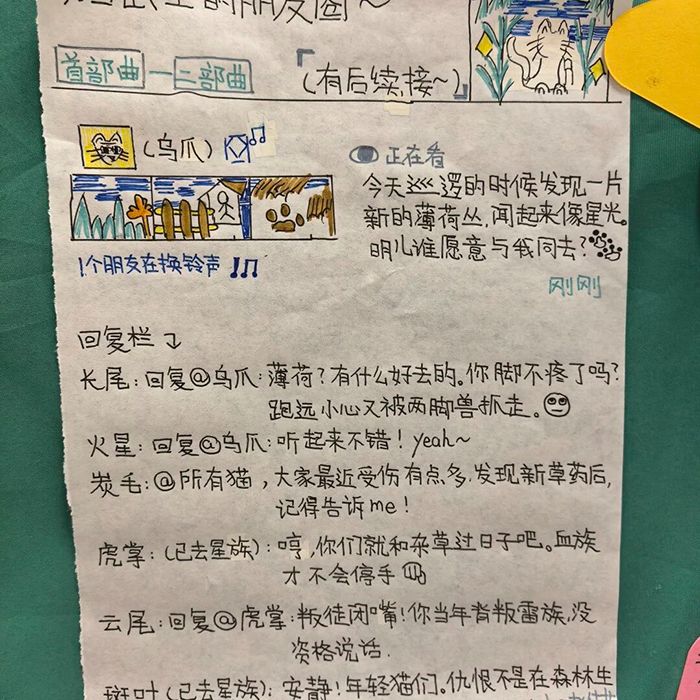 的朋友圈~
首部曲—二部曲
(有后续,接~)
(乌爪)
正在看
今天巡逻的时候发现一片
新的薄荷丛,闻起来像星光。
明儿谁愿意与我同去?
1个朋友在换铃声
刚刚
回复栏
长尾:回复@乌爪:薄荷?有什么好去的。你脚不疼了吗?
跑远小心又被两脚兽抓走。
火星:回复@乌爪:听起来不错!yeah~
炭毛:@所有猫,大家最近受伤有点多.发现新草药后,
记得告诉me!
虎掌:(已去星族):哼,你们就和杂草过日子吧。血族
才不会停手
云尾:回复@虎掌:叛徒闭嘴!你当年背叛雷族,没
资格说话.
斑叶(已去星族):安静!年轻猫们。仇恨不是在森林生